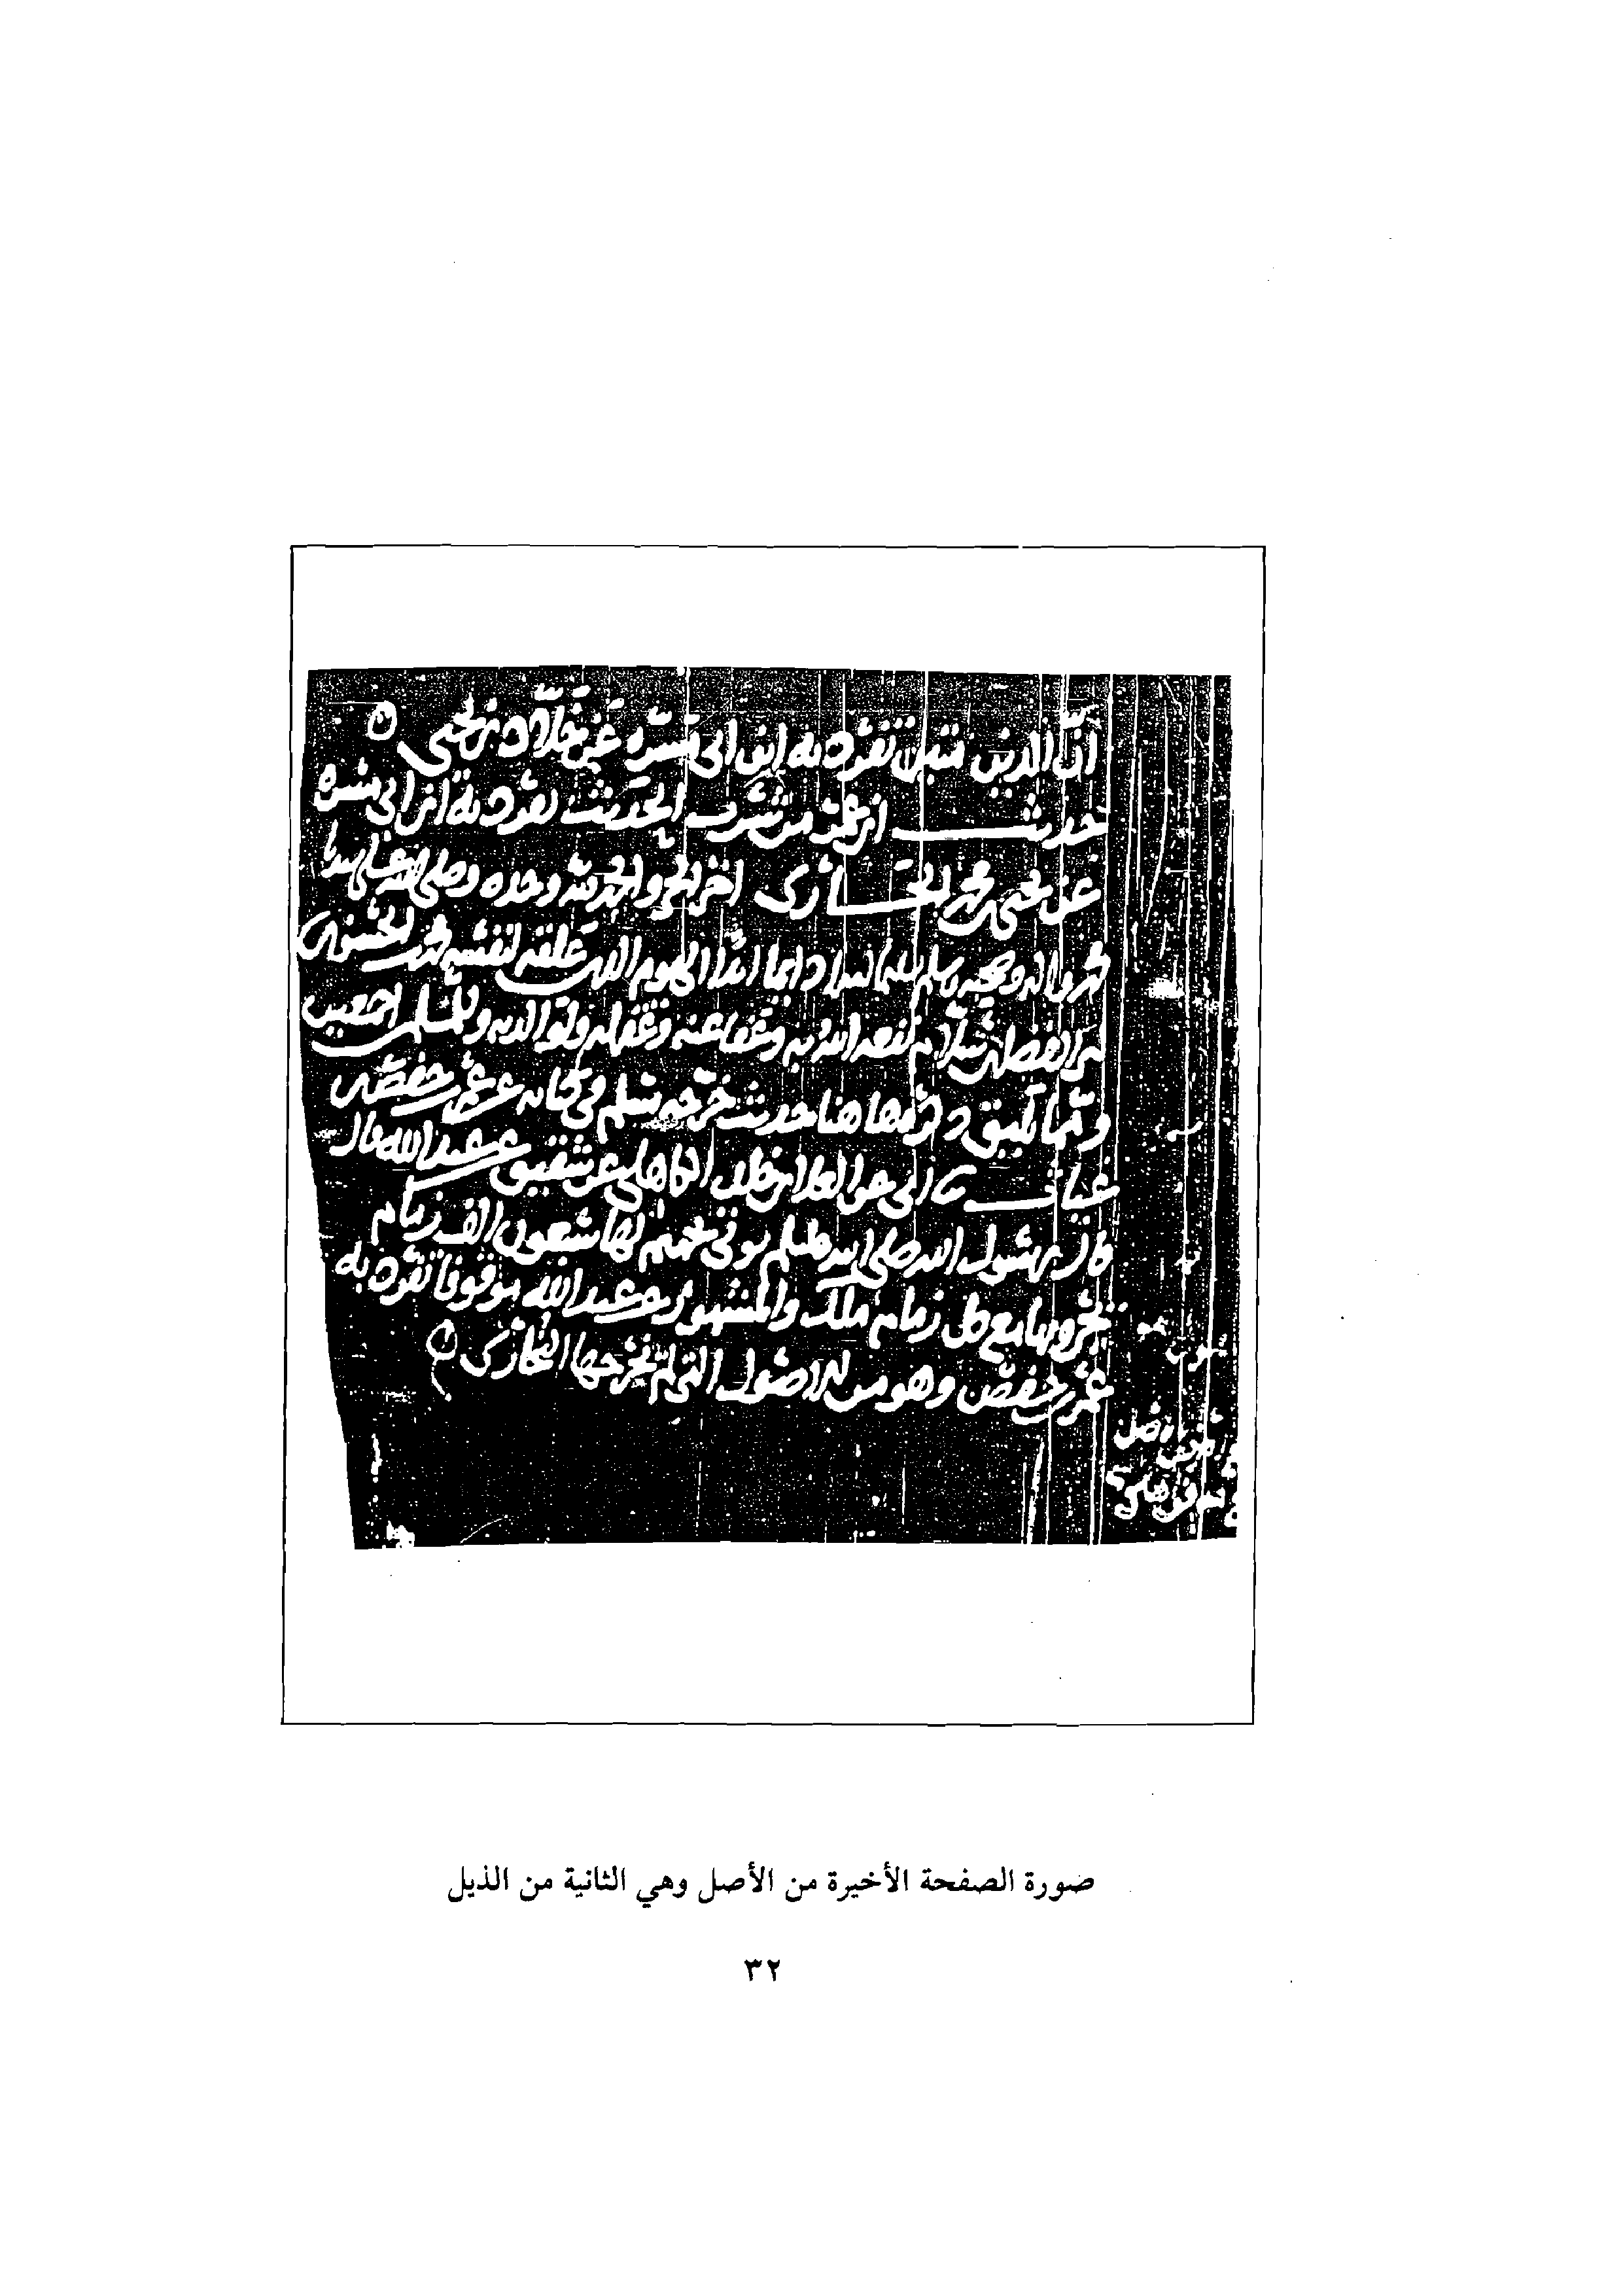 ان الدين متين تفرد به ابن ابي مسرة عن خلاد بن يحيى
حديث ابن عمر من شرب الحديث تفرد به ابن ابي مسرة
عن يحيى بن محمد الجاري اخر الجزو الحمد لله وحده وصلى الله على سيدنا
محمد واله وصحبه وسلم تسليما دايما ابدا الى يوم الدين علقه لنفسه محمد
بن ابي الفضل بن نفعه الله به وعفا عنه وغفر له ولوالديه وللمسلمين اجمعين
ومما يليق ذكره ها هنا حديث خرجه مسلم في كتابه عن عمر بن حفص بن
غياث ثنا ابي عن العلا بن خالد الكاهلي عن شقيق عن عبد الله قال
قال رسول الله صلى الله عليه وسلم يوتى بجهنم لها سبعون الف زمام
يجرونها مع كل زمام ملك والمشهور عن عبد الله موقوفا تفرد به
عمر بن حفص وهو من الاصول التي لم يخرجها البخاري
صورة الصفحة الأخيرة من الأصل وهي الثانية من الذيل
٣٢